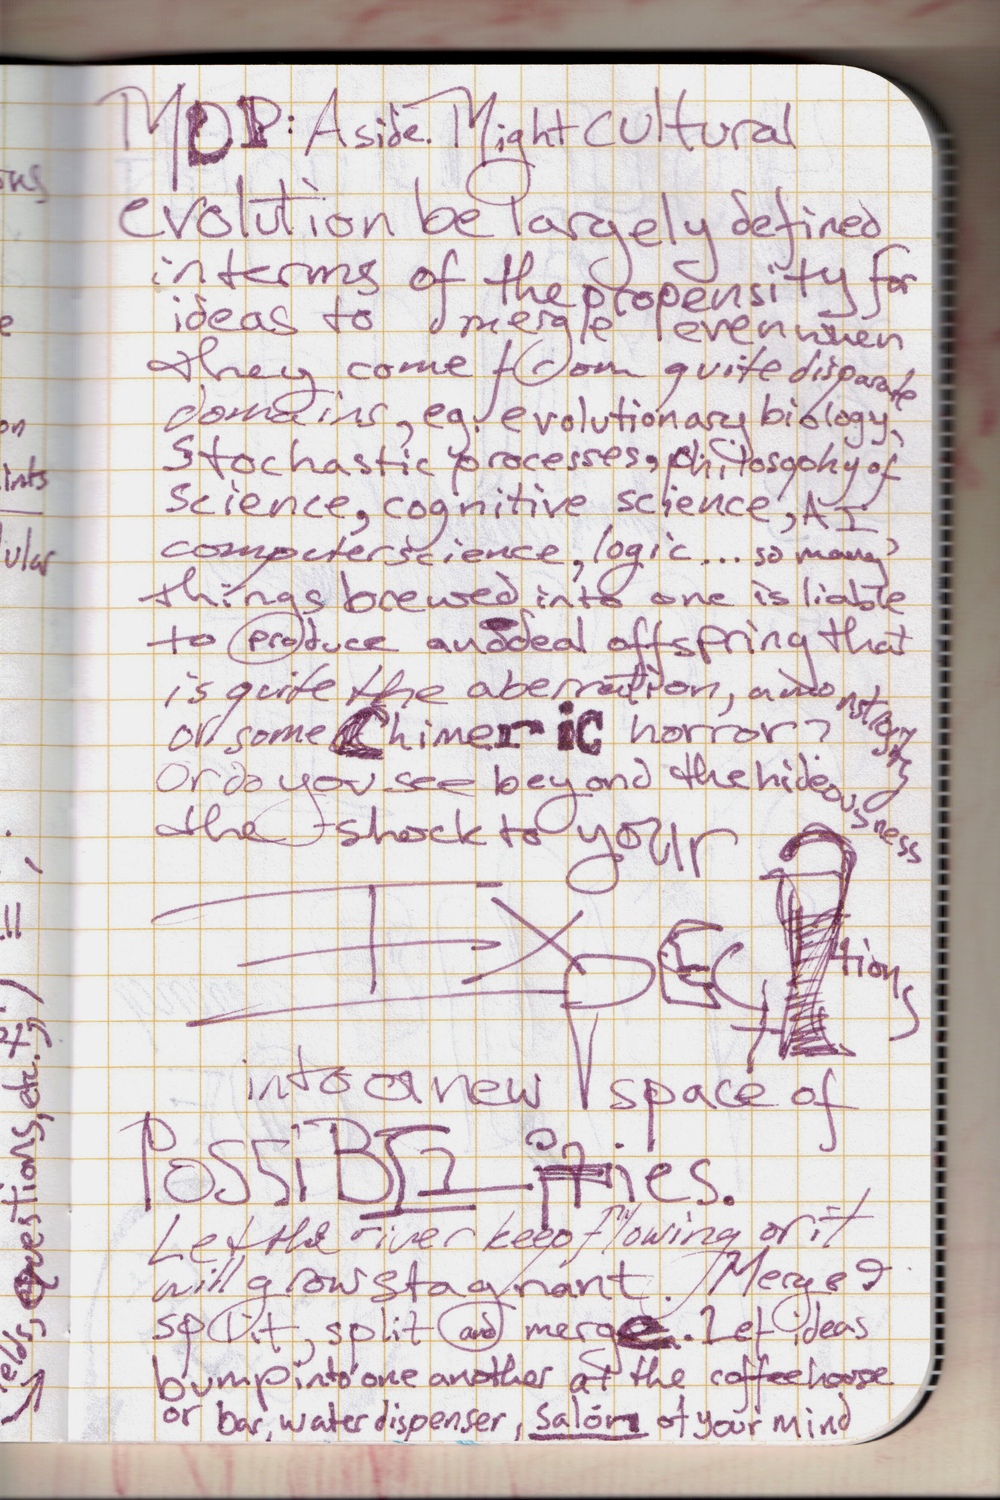 MOP: Aside. Might cultural
evolution be largely defined
in terms of the propensity for
ideas to merge even when
they come from quite disparate
domains, eg. evolutionary biology,
stochastic processes, philosophy of
science, cognitive science, AI
computer science, logic... so many?
things brewed into one is liable
to produce an odd offspring that
is quite the aberration, a monstrosity
or some Chimeric horror?
Or do you see beyond the hideousness
the shock to your
EXPECtAtions
into a new space of
PoSSiBILities.
Let the river keep flowing or it
will grow stagnant. Merge &
split, split and merge. Let ideas
bump into one another at the coffeehouse
or bar, water dispenser, salon of your mind
ons
e
on
ints
ular
ields, questions, etc.